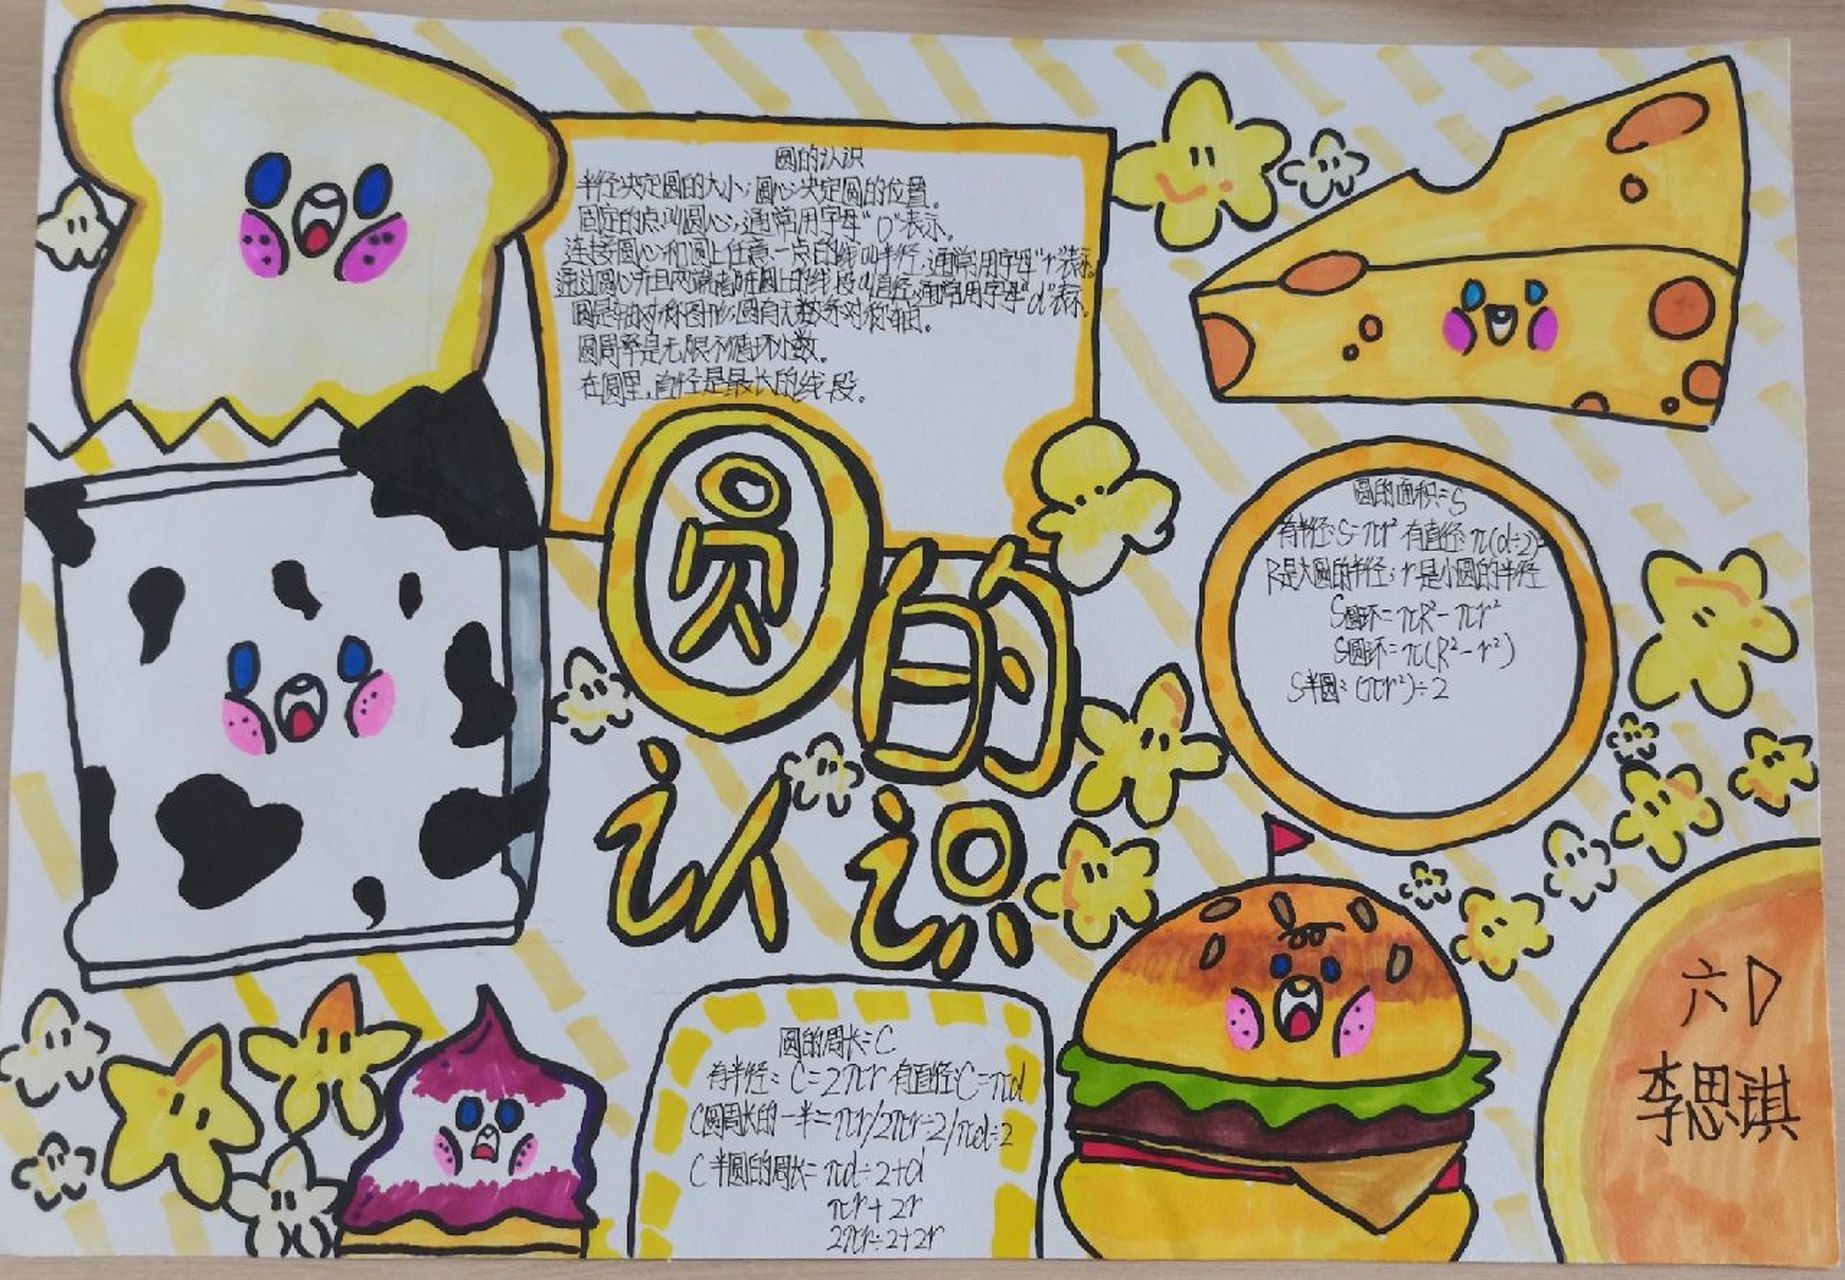 圆的认识
半径决定圆的大小；圆心决定圆的位置。
固定的点叫圆心，通常用字母“O”表示。
连接圆心和圆上任意一点的线叫半径，通常用字母“r”表示
通过圆心并且两端都在圆上的线段叫直径，通常用字母“d”表示。
圆是轴对称图形，圆有无数条对称轴。
圆周率是无限不循环小数。
在圆里，直径是最长的线段。
圆的认识
圆的面积：S
有半径：S=πr² 有直径：π(d÷2)²
R是大圆的半径；r是小圆的半径
S圆环=πR²-πr²
S圆环=π(R²-r²)
S半圆：(πr²)÷2
圆的周长：C
有半径：C=2πr 有直径：C=πd
C圆周长的一半=πr/2πr÷2/πd÷2
C半圆的周长=πd÷2+d
πr+2r
2πr÷2+2r
六D
李思琪